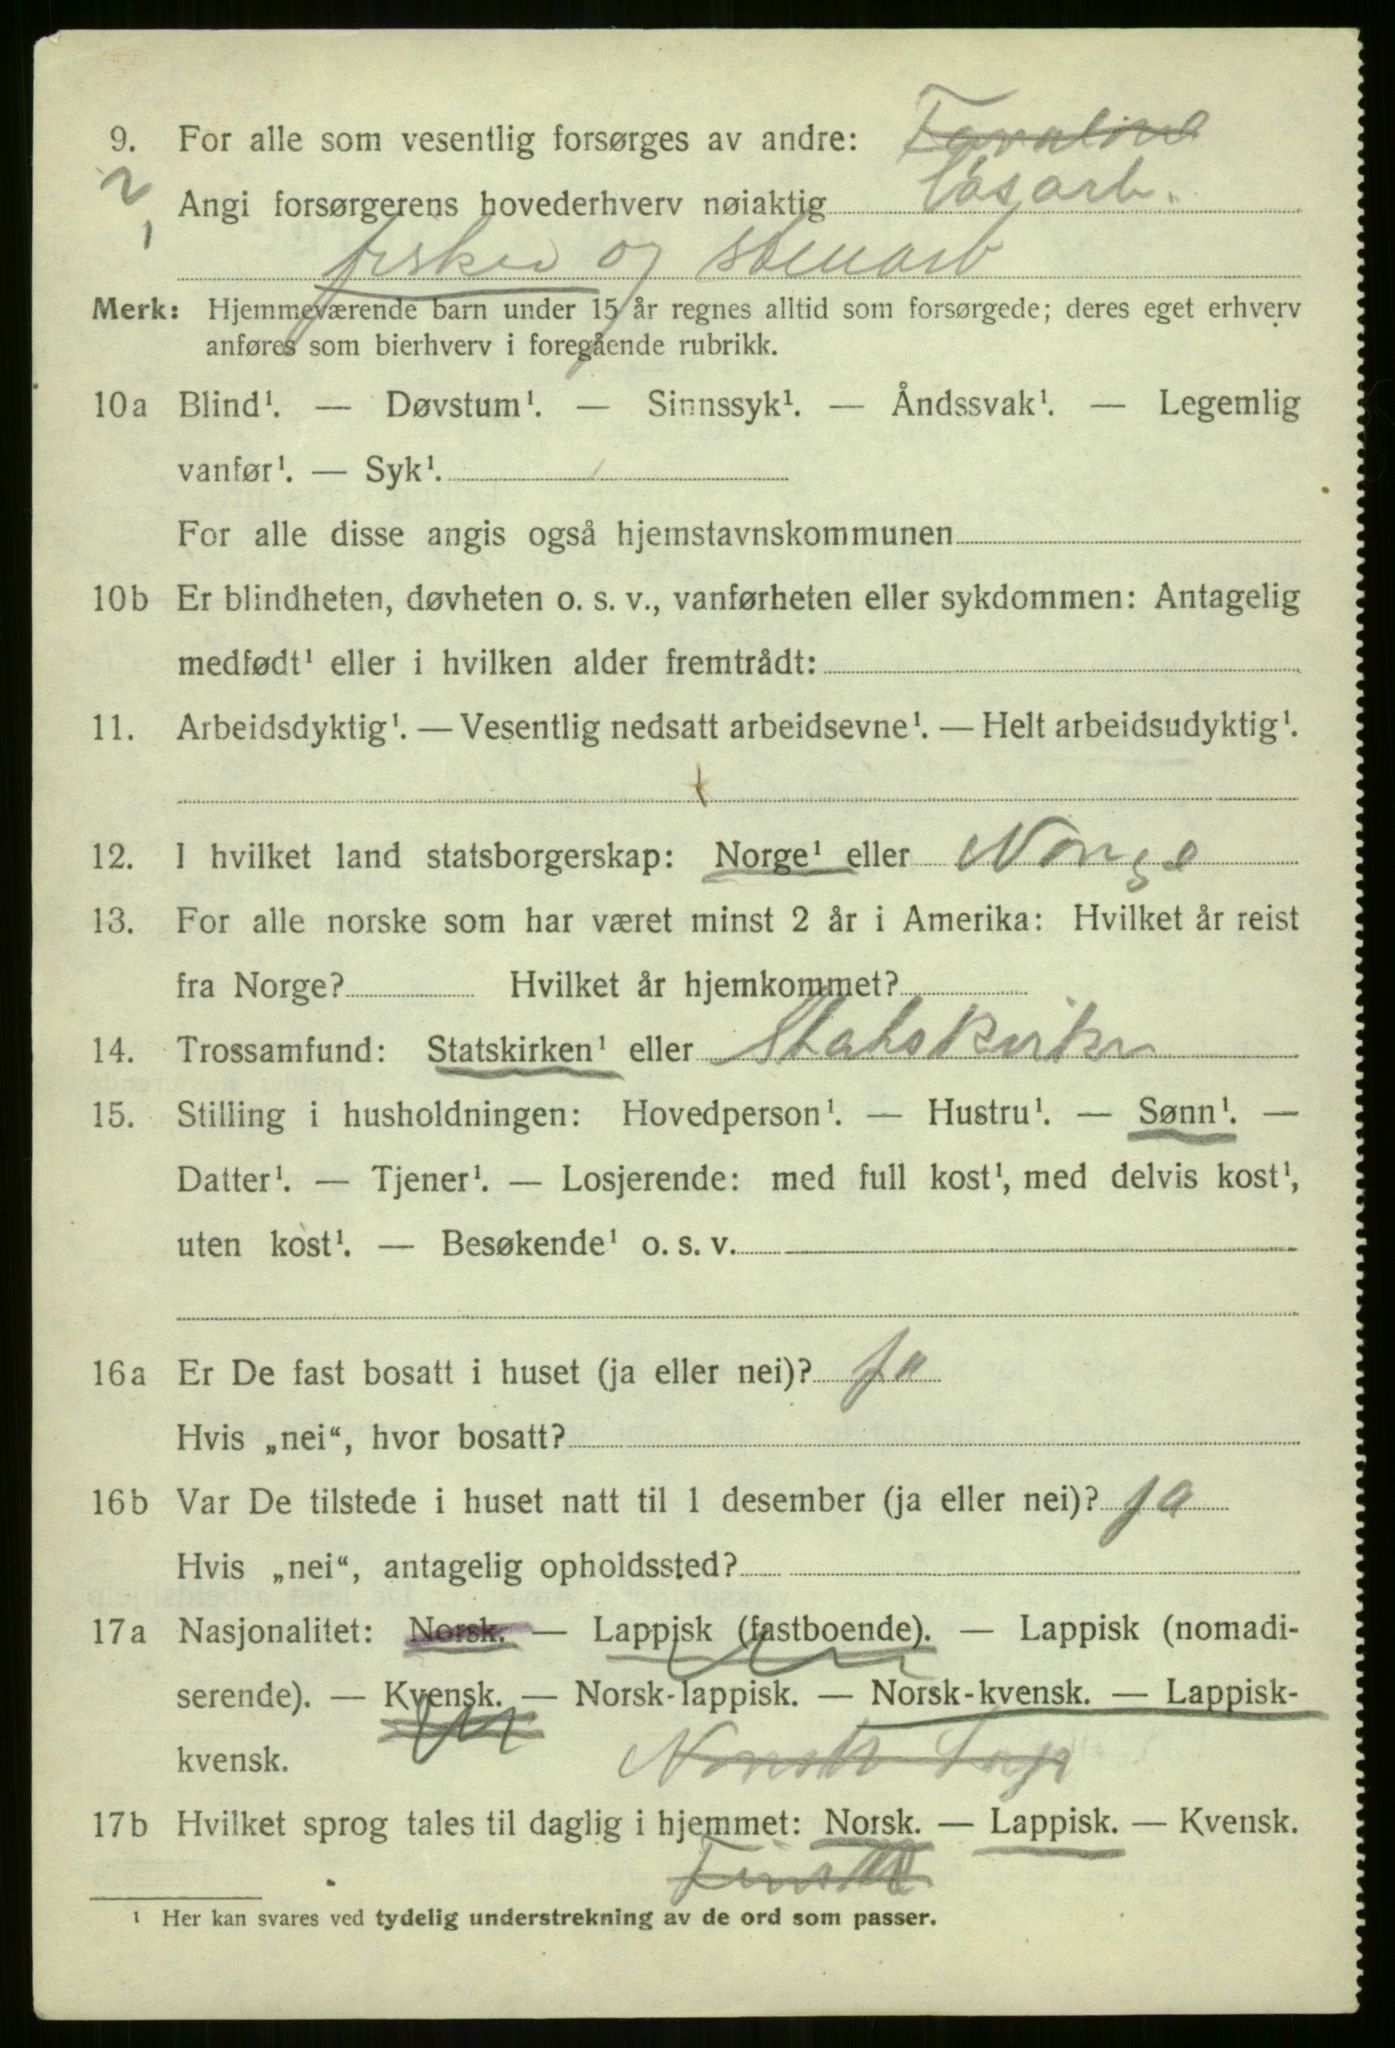 9. For alle som vesentlig forsørges av andre:
løsarb.
2 Angi forsørgerens hovederhverv nøiaktig
1
fisker og stenarb
Merk: Hjemmeværende barn under 15 år regnes alltid som forsørgede; deres eget erhverv
anføres som bierhverv i foregående rubrikk.
10a Blind¹. — Døvstum¹. — Sinnssyk¹. — Åndssvak¹. — Legemlig
vanfør¹. — Syk¹.
For alle disse angis også hjemstavnskommunen
10b Er blindheten, døvheten o. s. v., vanførheten eller sykdommen: Antagelig
medfødt¹ eller i hvilken alder fremtrådt:
11. Arbeidsdyktig¹. — Vesentlig nedsatt arbeidsevne¹. — Helt arbeidsudyktig¹.
12. I hvilket land statsborgerskap: Norge¹ eller Norge
13. For alle norske som har været minst 2 år i Amerika: Hvilket år reist
fra Norge? Hvilket år hjemkommet?
14. Trossamfund: Statskirken¹ eller Statskirken
15. Stilling i husholdningen: Hovedperson¹. — Hustru¹. — Sønn¹. —
Datter¹. — Tjener¹. — Losjerende: med full kost¹, med delvis kost¹,
uten kost¹. — Besøkende¹ o. s. v.
16a Er De fast bosatt i huset (ja eller nei)? ja
Hvis „nei“, hvor bosatt?
16b Var De tilstede i huset natt til 1 desember (ja eller nei)? ja
Hvis „nei“, antagelig opholdssted?
17a Nasjonalitet: Norsk. — Lappisk (fastboende). — Lappisk (nomadi-
serende). — Kvensk. — Norsk-lappisk. — Norsk-kvensk. — Lappisk-
kvensk. Norsk Lap
17b Hvilket sprog tales til daglig i hjemmet: Norsk. — Lappisk. — Kvensk.
Finsk
¹ Her kan svares ved tydelig understrekning av de ord som passer.